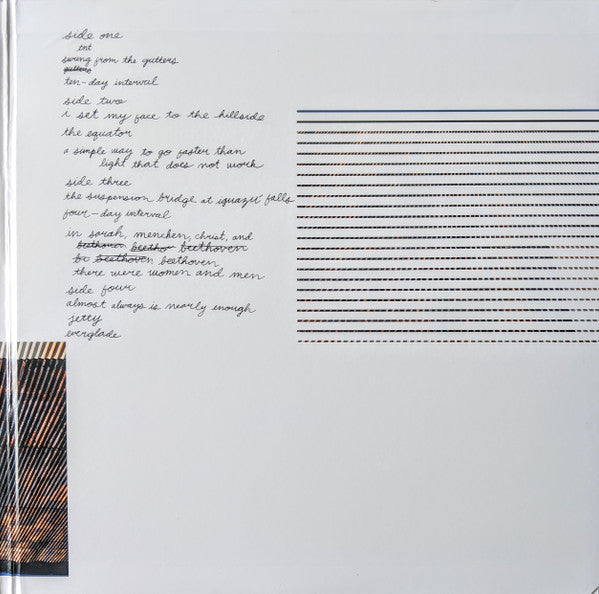 side one
tnt
swung from the gutters
gutters
ten-day interval
side two
i set my face to the hillside
the equator
a simple way to go faster than
light that does not work
side three
the suspension bridge at iguazú falls
four-day interval
in sarah, mencken, christ, and
beethoven beetho beethoven
be beethoven beethoven
there were women and men
side four
almost always is nearly enough
jetty
everglade